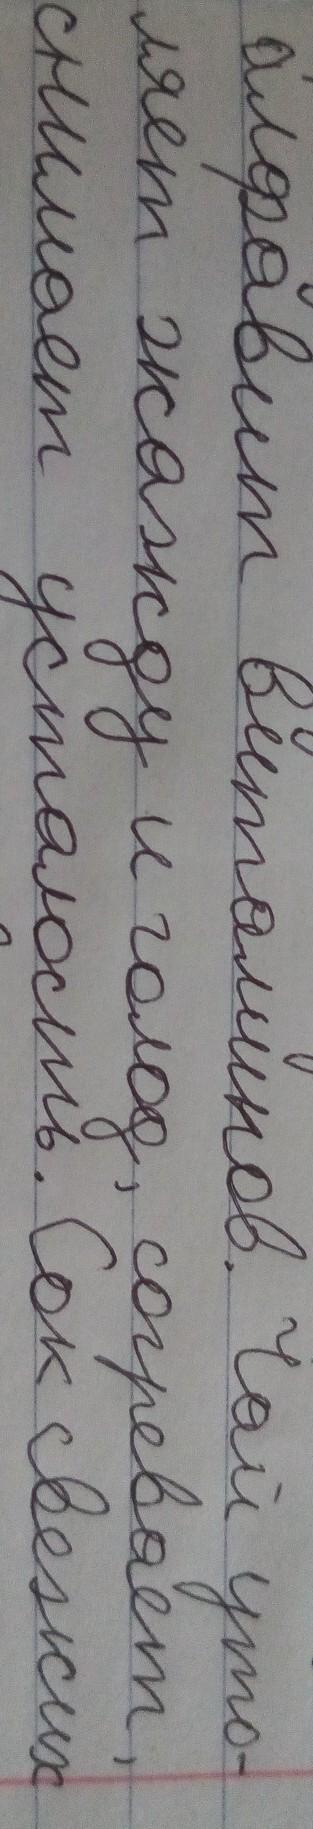 алфавит витаминов. Чай уто-
ляет жажду и голод, согревает,
снимает усталость. Сок свежих